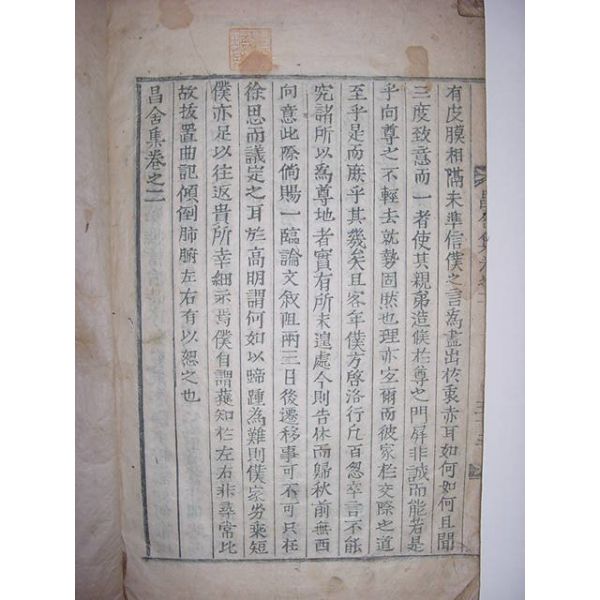 有皮膜相隔未準信僕之言為盡出於衷赤耳如何如何且聞
三度致意而一者使其親弟造候於尊之門屏非誠而能若是
乎向尊之不輕去就勢固然也理亦宜爾而彼家於交際之道
至乎是而庶乎其幾矣且客年僕方啓洛行凡百怱卒言不能
究諸所以為尊地者實有所未遑處今則告休而歸秋前無西
向意此際倘賜一臨論文敘阻兩三日後遷移事可不可只在
徐思而議定之耳於高明謂何如以啼踵為難則僕家劣乘短
僕亦足以往返貴所幸細示焉僕自謂蕤知於左右非尋常比
故抜置曲記傾倒肺腑左右有以恕之也
昌舍集卷之二